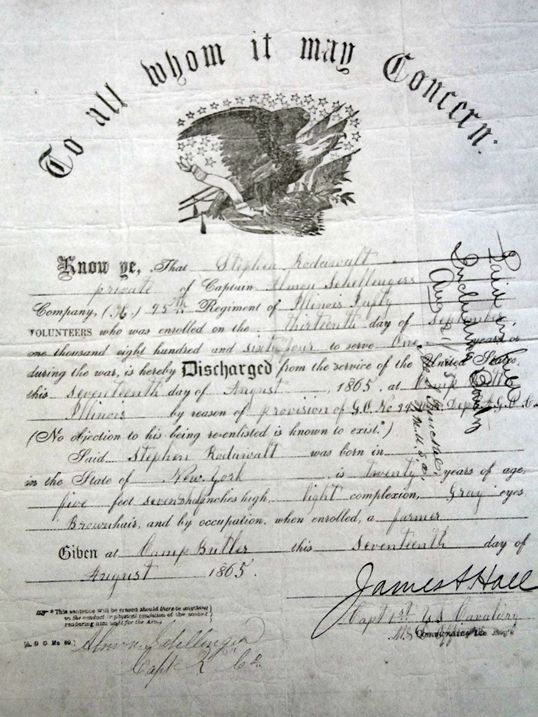 To all whom it may Concern:
Know ye, That Stephen Rodawalt
private of Captain Almon Schellengers
Company, (K,) 95th Regiment of Illinois Infty
VOLUNTEERS who was enrolled on the thirteenth day of September
one thousand eight hundred and sixty four to serve One years or
during the war, is hereby Discharged from the service of the United States,
this seventeenth day of August, 1865, at Camp
Illinois by reason of provision of G.O. No
(No objection to his being re-enlisted is known to exist.*)
Said Stephen Rodawalt was born in
in the State of New York is twenty years of age,
five feet seven inches high, light complexion, Gray eyes
Brown hair, and by occupation, when enrolled, a farmer
Given at Camp Butler this Seventeenth day of
August 1865.
James A Hall
Capt 1st US Cavalry
*This sentence will be erased should there be anything
in the conduct or physical condition of the soldier
rendering him unfit for the Army.
[A. G. O. No. 99.]
Almon Schellenger
Capt K Co
Paid in full